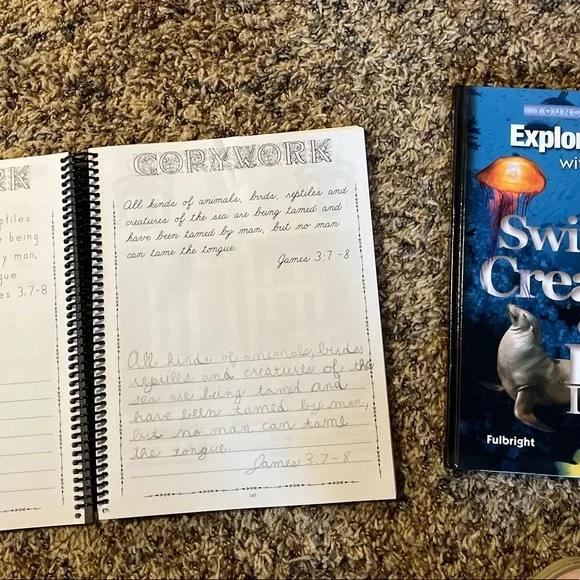 RK
eptiles
e being
y man,
gue.
es 3:7-8
COPYWORK
All kinds of animals, birds, reptiles and
creatures of the sea are being tamed and
have been tamed by man, but no man
can tame the tongue.
James 3:7-8
All kinds of animals, birds
reptiles and creatures of the
sea are being tamd and
have been tamed by man,
but no man can tame
the tongue.
James 3:7-8
145
YOUNG
Explor
wit
Swi
Crea
Fulbright